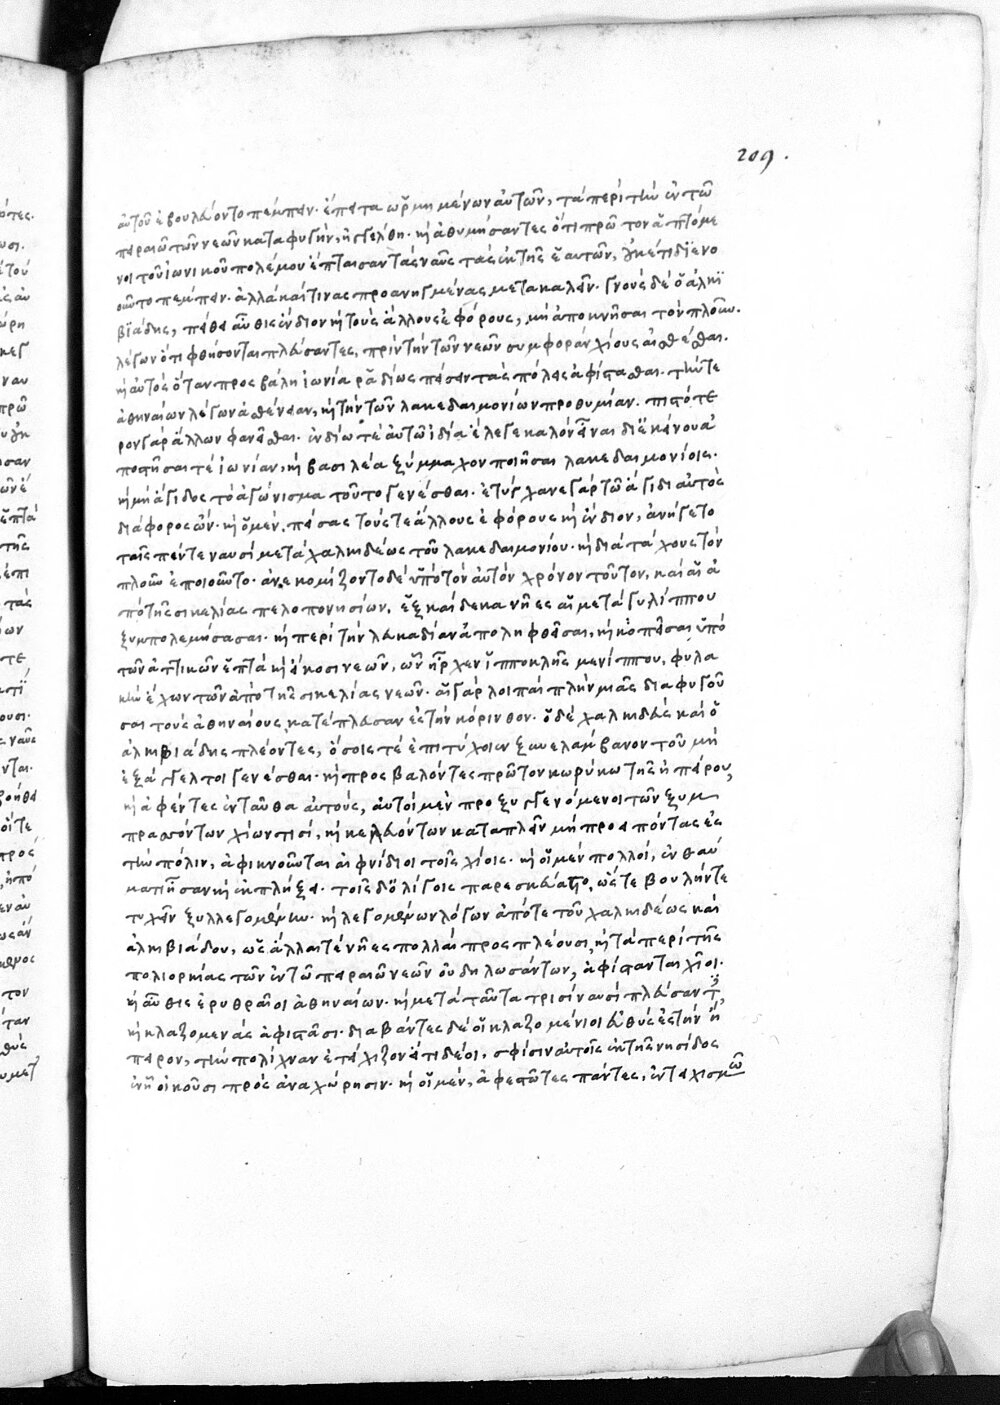 209.
αὐτοῦ ἐβουλεύοντο πέμπειν. ἔπειτα ὡρμημένων αὐτῶν, τὰ περὶ τὴν ἐν τῶ
πειραιῶ τῶν νεῶν καταφυγὴν, ἠγγέλθη. καὶ ἀθυμήσαντες ὅτι πρῶτον ἁπτόμε
νοι τοῦ ἰωνικοῦ πολέμου ἔπταισαν τὰς ναῦς τὰς ἐκ τῆς ἑαυτῶν, οὐκέτι διενο
οῦντο πέμπειν. ἀλλὰ καί τινας προανηγμένας μετακαλεῖν. γνοὺς δὲ ὁ ἀλκι
βιάδης, πείθει αὖθις ἔνδιον καὶ τοὺς ἄλλους ἐφόρους, μὴ ἀποκνῆσαι τὸν πλοῦν.
λέγων ὅτι φθήσονται πλεύσαντες, πρὶν τὴν τῶν νεῶν συμφορὰν χίους αἰσθέσθαι.
καὶ αὐτὸς ὅταν προσβάλη ἰωνία ραδίως πείσειν τὰς πόλεις ἀφίστασθαι. τήν τε
ἀθηναίων λέγων ἀσθένειαν, καὶ τὴν τῶν λακεδαιμονίων προθυμίαν. πιστότε
ρον γὰρ ἄλλων φανεῖσθαι. ἐνδίω τὲ αὐτῶ ἰδία ἔλεγε καλὸν εἶναι δι' ἐκείνου ἀ
ποστῆσαί τε ἰωνίαν, καὶ βασιλέα ξύμμαχον ποιῆσαι λακεδαιμονίοις.
καὶ μὴ ἄγιδος τὸ ἀγώνισμα τοῦτο γενέσθαι. ἐτύγχανε γὰρ τῶ ἄγιδι αὐτὸς
διάφορος ὤν. καὶ ὁ μὲν, πείσας τούς τε ἄλλους ἐφόρους καὶ ἔνδιον, ἀνήγετο
ταῖς πέντε ναυσὶ μετὰ χαλκιδέως τοῦ λακεδαιμονίου. καὶ διὰ τάχους τὸν
πλοῦν ἐποιοῦντο. ἀνεκομίζοντο δὲ ὑπὸ τὸν αὐτὸν χρόνον τοῦτον, καὶ αἱ ἀ
πὸ τῆς σικελίας πελοπονησίων, ἑξκαίδεκα νῆες αἱ μετὰ γυλίππου
ξυμπολεμήσασαι. καὶ περὶ τὴν λευκαδίαν ἀποληφθεῖσαι, καὶ κοπεῖσαι ὑπὸ
τῶν ἀττικῶν ἑπτὰ καὶ εἴκοσι νεῶν, ὧν ἦρχεν ἱπποκλῆς μενίππου, φυλα
κὴν ἔχων τῶν ἀπὸ τῆς σικελίας νεῶν. αἱ γὰρ λοιπαὶ πλὴν μιᾶς διαφυγοῦ
σαι τοὺς ἀθηναίους, κατέπλευσαν ἐς τὴν κόρινθον. ὁ δὲ χαλκιδεὺς καὶ ὁ
ἀλκιβιάδης πλέοντες, ὅσοις τὲ ἐπιτύχοιεν ξυνελάμβανον τοῦ μὴ
ἐξάγγελτοι γενέσθαι. καὶ προσβαλόντες πρῶτον κωρύκω τῆς ἠπείρου,
καὶ ἀφέντες ἐνταῦθα αὐτοὺς, αὐτοὶ μὲν προξυγγενόμενοι τῶν ξυμ
πρασσόντων χίων τισὶ, καὶ κελευόντων καταπλεῖν μὴ προειπόντας ἐς
τὴν πόλιν, ἀφικνοῦνται αἰφνίδιοι τοῖς χίοις. καὶ οἱ μὲν πολλοὶ, ἐν θαύ
ματι ἦσαν καὶ ἐκπλήξει. τοῖς δ' ὀλίγοις παρεσκεύαστο, ὥστε βουλήν τε
τυχεῖν ξυλλεγομένην. καὶ λεγομένων λόγων ἀπό τε τοῦ χαλκιδέως καὶ
ἀλκιβιάδου, ὡς ἄλλαι τὲ νῆες πολλαὶ προσπλέουσι καὶ τὰ περὶ τῆς
πολιορκίας τῶν ἐν τῶ πειραιῶ νεῶν οὐ δηλωσάντων, ἀφίστανται χῖοι.
καὶ αὖθις ἐρυθραῖοι ἀθηναίων. καὶ μετὰ ταῦτα τρισὶ ναυσὶ πλεύσαντες,
καὶ κλαζομενὰς ἀφιστᾶσι. διαβάντες δὲ οἱ κλαζομένιοι εὐθὺς ἐς τὴν ἤ
πειρον, τὴν πολίχναν ἐτείχιζον εἴ τι δέοι, σφίσιν αὐτοῖς ἐκ τῆς νησίδος
ἐν ἧ οἰκοῦσι πρὸς ἀναχώρησιν. καὶ οἱ μὲν, ἀφεστῶτες πάντες, ἐν τειχισμῶ